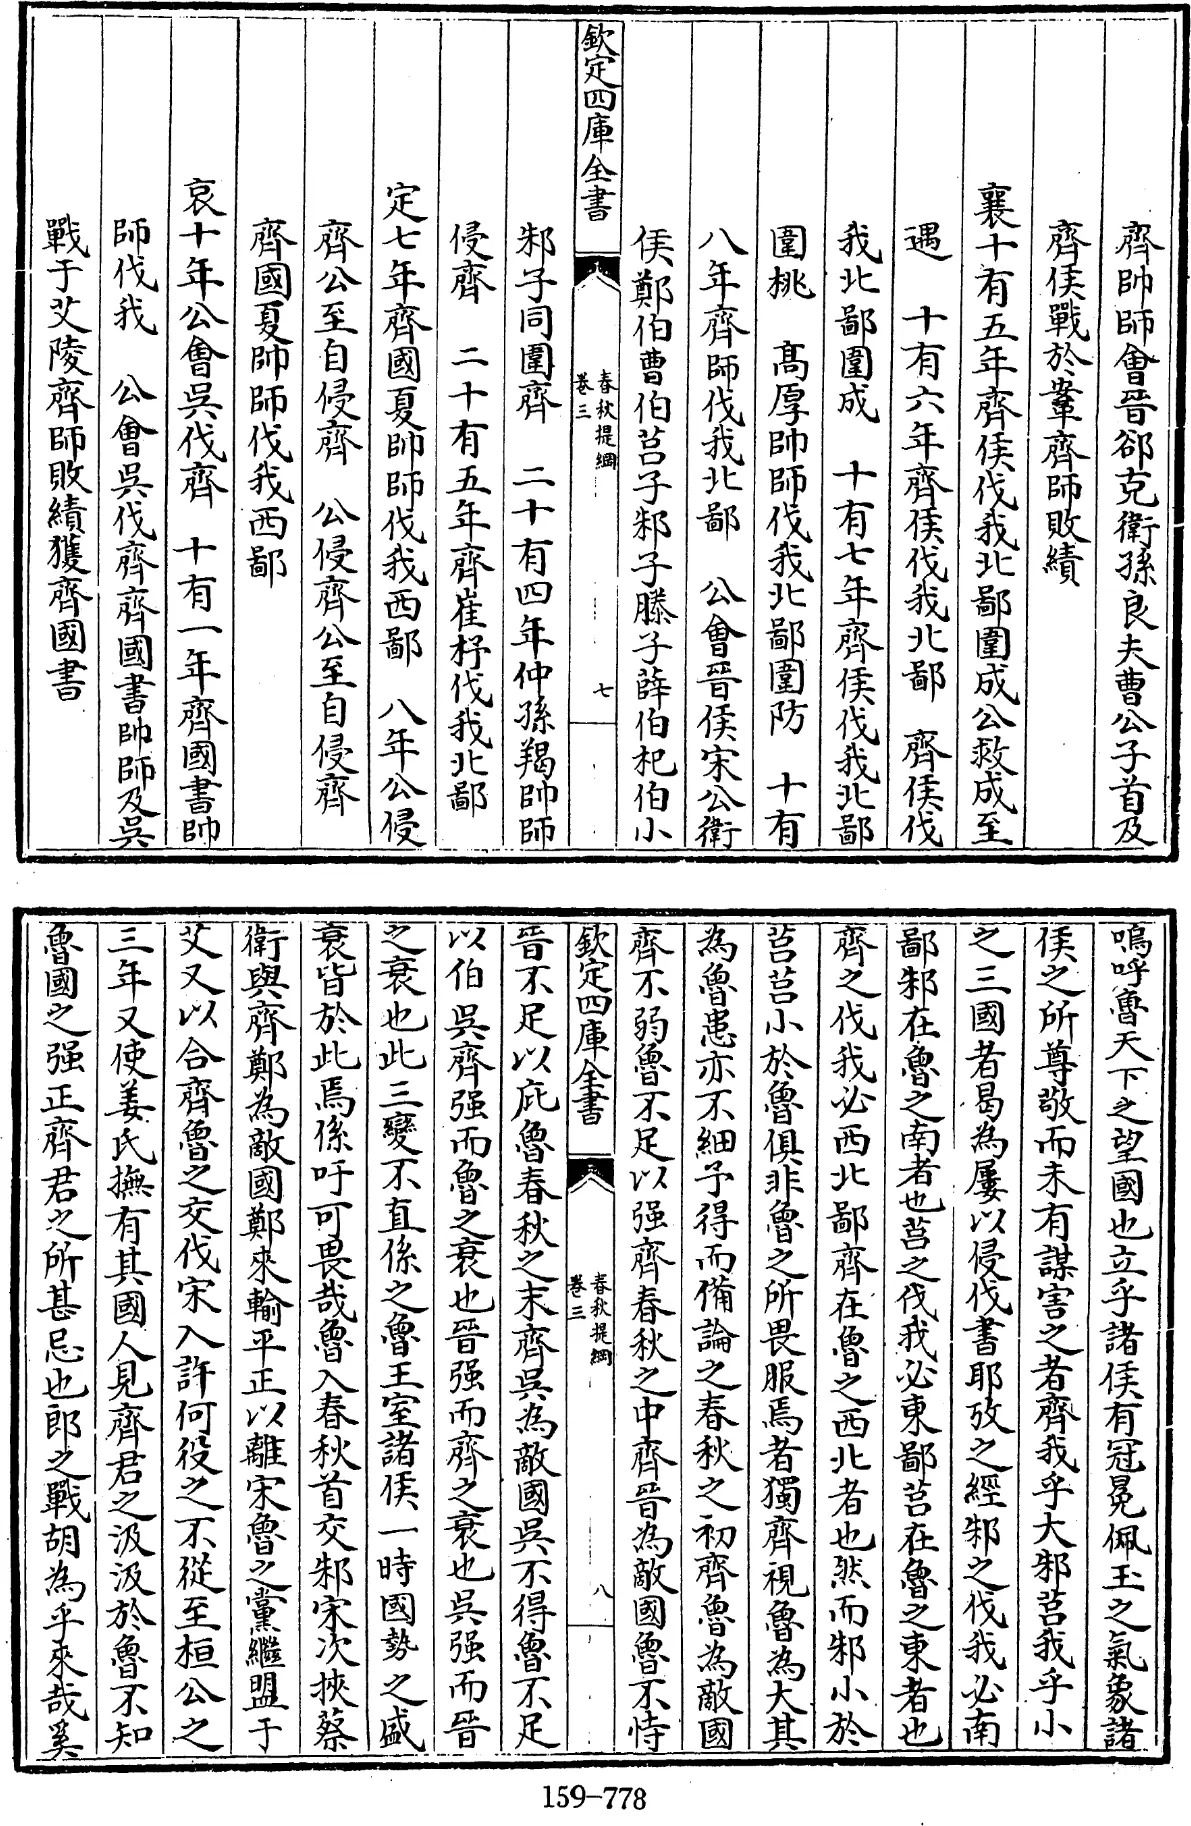 齊帥師會晉郤克衛孫良夫曹公子首及
齊侯戰於鞌齊師敗績
襄十有五年齊侯伐我北鄙圍成公救成至
遇　十有六年齊侯伐我北鄙　齊侯伐
我北鄙圍成　十有七年齊侯伐我北鄙
圍桃　高厚帥師伐我北鄙圍防　十有
八年齊師伐我北鄙　公會晉侯宋公衛
侯鄭伯曹伯莒子邾子滕子薛伯杞伯小
欽定四庫全書
春秋提綱
卷三
七
邾子同圍齊　二十有四年仲孫羯帥師
侵齊　二十有五年齊崔杼伐我北鄙
定七年齊國夏帥師伐我西鄙　八年公侵
齊公至自侵齊　公侵齊公至自侵齊
齊國夏帥師伐我西鄙
哀十年公會吳伐齊　十有一年齊國書帥
師伐我　公會吳伐齊齊國書帥師及吳
戰于艾陵齊師敗績獲齊國書
嗚呼魯天下之望國也立乎諸侯有冠冕佩玉之氣象諸
侯之所尊敬而未有謀害之者齊我乎大邾莒我乎小
之三國者曷為屢以侵伐書耶攷之經邾之伐我必南
鄙邾在魯之南者也莒之伐我必東鄙莒在魯之東者也
齊之伐我必西北鄙齊在魯之西北者也然而邾小於
莒莒小於魯俱非魯之所畏服焉者獨齊視魯為大其
為魯患亦不細予得而備論之春秋之初齊魯為敵國
齊不弱魯不足以强齊春秋之中齊晉為敵國魯不恃
欽定四庫全書
春秋提綱
卷三
八
晉不足以庇魯春秋之末齊吳為敵國吳不得魯不足
以伯吳齊强而魯之衰也晉强而齊之衰也吳强而晉
之衰也此三變不直係之魯王室諸侯一時國勢之盛
衰皆於此焉係吁可畏哉魯入春秋首交邾宋次挾蔡
衛與齊鄭為敵國鄭來輸平正以離宋魯之黨繼盟于
艾又以合齊魯之交伐宋入許何役之不從至桓公之
三年又使姜氏撫有其國人見齊君之汲汲於魯不知
魯國之强正齊君之所甚忌也郎之戰胡為乎來哉奚
159-778